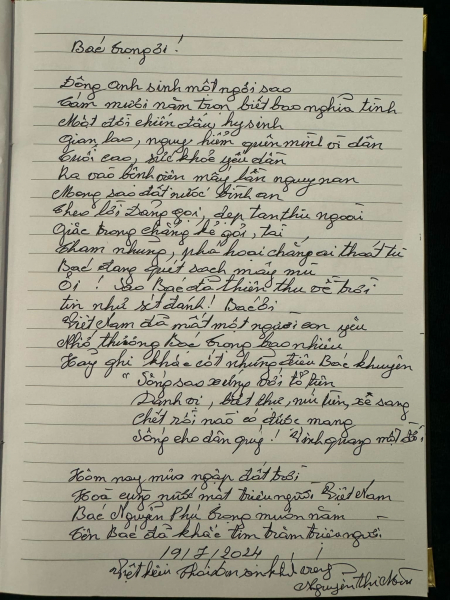 Bác trọng ơi!
Đông Anh sinh một ngôi sao
Tám mươi năm tron, biết bao nghĩa tình
Một đời chiến đấu hy sinh
Gian lao, nguy hiểm quên mình vì dân
Tuổi cao, sức khoẻ yếu dần
Ra vào bệnh viện mấy lần nguy nan
Mong sao đất nước bình an
Theo lời Đảng gọi, dẹp tan thù ngoài
Giặc trong chẳng kể gái, tài
Tham nhũng, phá hoại chẳng ai thoát tù
Bác đang quét sạch mây mù
Ôi! Sao Bác đã thiên thu về trời
tin như sét đánh! Bác ơi
Việt Nam đã mất một người con yêu
Nhớ thương Bác trọng bao nhiêu
Hãy ghi khắc cốt những điều Bác khuyên
"Sống sao xứng với tổ tiên
Danh vị, biệt thự, núi tiền, xế sang
Chết rồi nào có được mang
Sống cho dân quý! Vinh quang một đời
Hôm nay mưa ngập đất trời
Hoà cùng nước mắt triệu người Việt Nam
Bác Nguyễn Phú trọng muôn năm
Tên Bác đã khắc tim trăm triệu người
19/7/2024
Việt kiều Thái Lan sinh kính
Nguyễn Thị